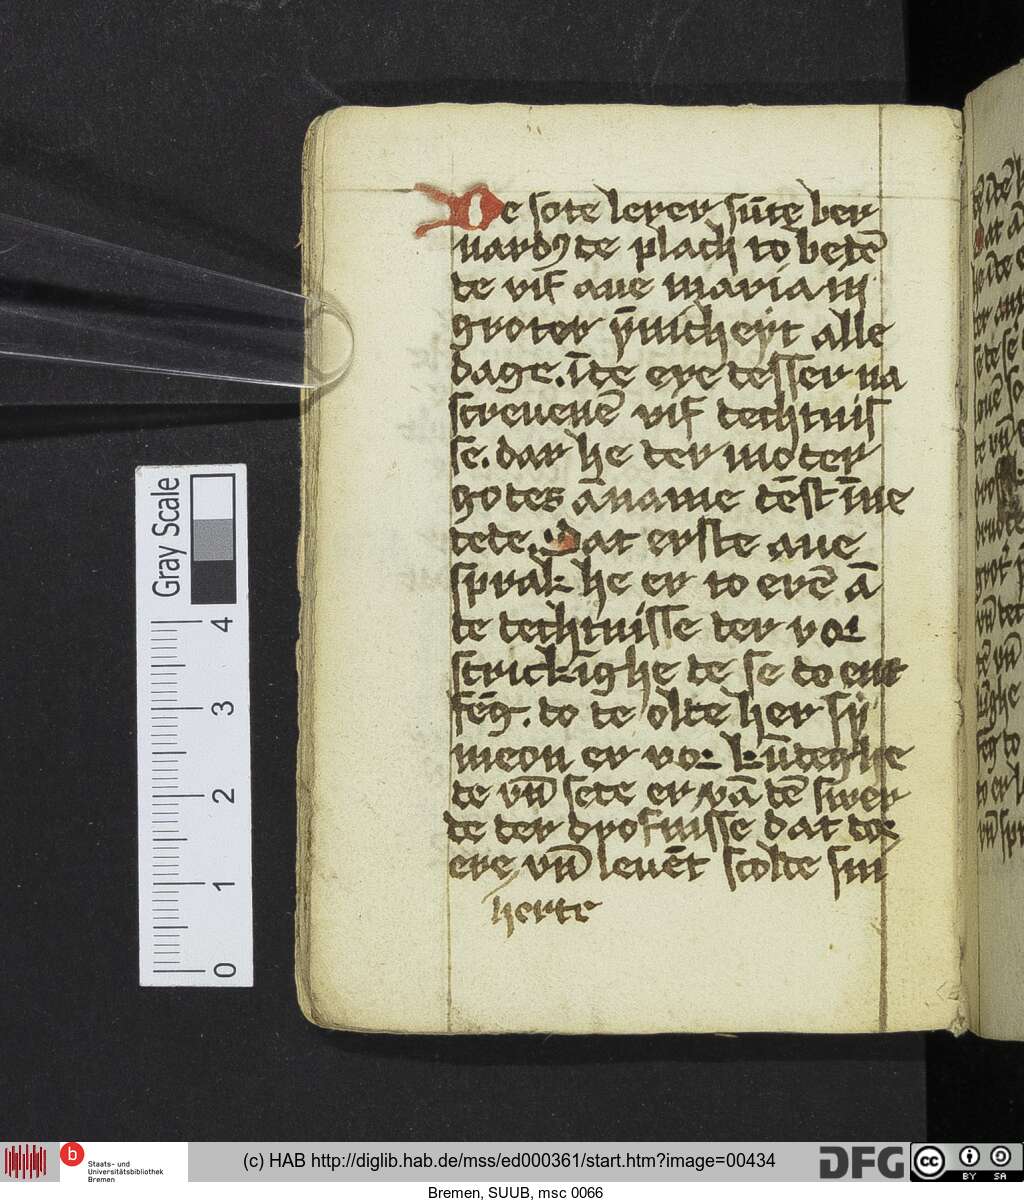 De sote lerer sūte ber
nardꝰ te plach to betē
te vif aue maria in
groter ȳnicheyt alle
dage. īte ere tesser na
screuenē vif techtnis
se. dar he ter moter
gotes āname tēst īne
tete. Dat erste aue
sprak he er to erē ā
te techtnisse ter vor
strickighe te se to ent
fēg. to te olte her sy
meon er vor kūteghe
te vn̄ sete er vā tē swer
te ter drofnisse dat tor
ere vn̄ leuēt scolte sin
herte
Gray Scale
4
3
2
1
0
b
Staats- und
Universitätsbibliothek
Bremen
(c) HAB http://diglib.hab.de/mss/ed000361/start.htm?image=00434
DFG
cc
BY SA
Bremen, SUUB, msc 0066